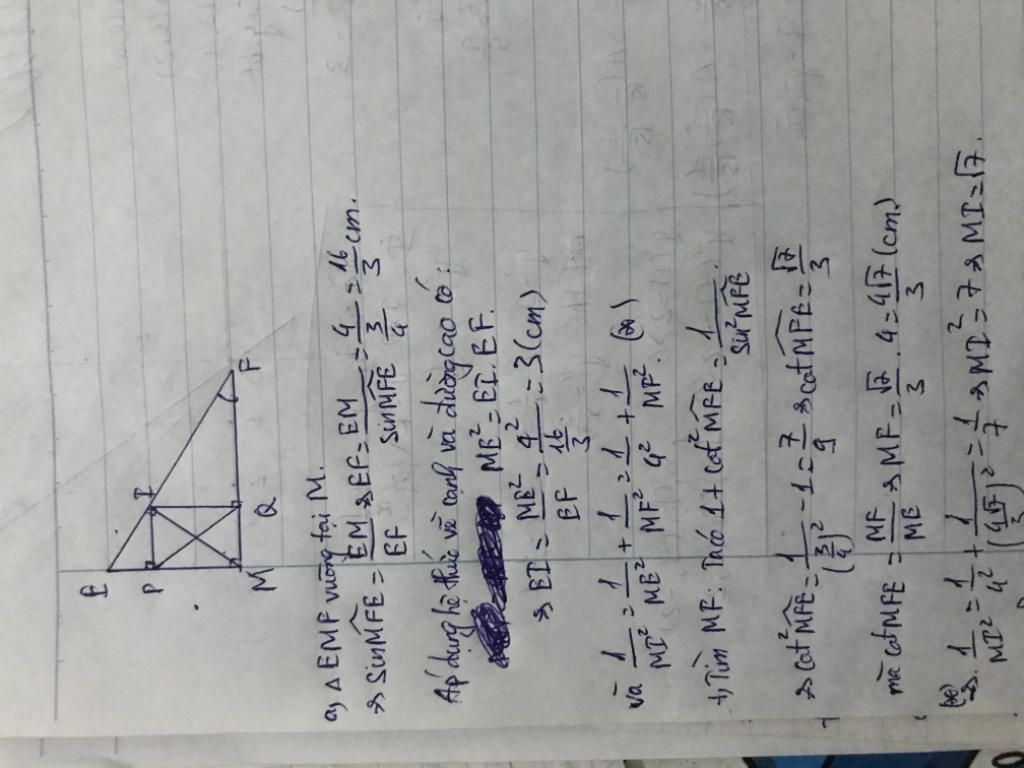 E
P
I
M
Q
F
a, Δ EMF vuông tại M.
⇒ Sin MFE = EM/EF ⇒ EF = EM/Sin MFE = 4/(3/4) = 16/3 cm.
Áp dụng hệ thức về cạnh và đường cao có:
ME² = EI. EF.
⇒ EI = ME²/EF = 4²/(16/3) = 3 (cm)
và 1/MI² = 1/ME² + 1/MF² = 1/4² + 1/MF². (*)
+, Tìm MF: Ta có 1 + cot² MFE = 1/Sin² MFE.
⇒ Cot² MFE = 1/(3/4)² - 1 = 7/9 ⇒ cot MFE = √7/3
mà cot MFE = MF/ME ⇒ MF = √7/3 . 4 = 4√7/3 (cm)
(*) ⇒. 1/MI² = 1/4² + 1/(4√7/3)² = 1/7 ⇒ MI² = 7 ⇒ MI = √7.